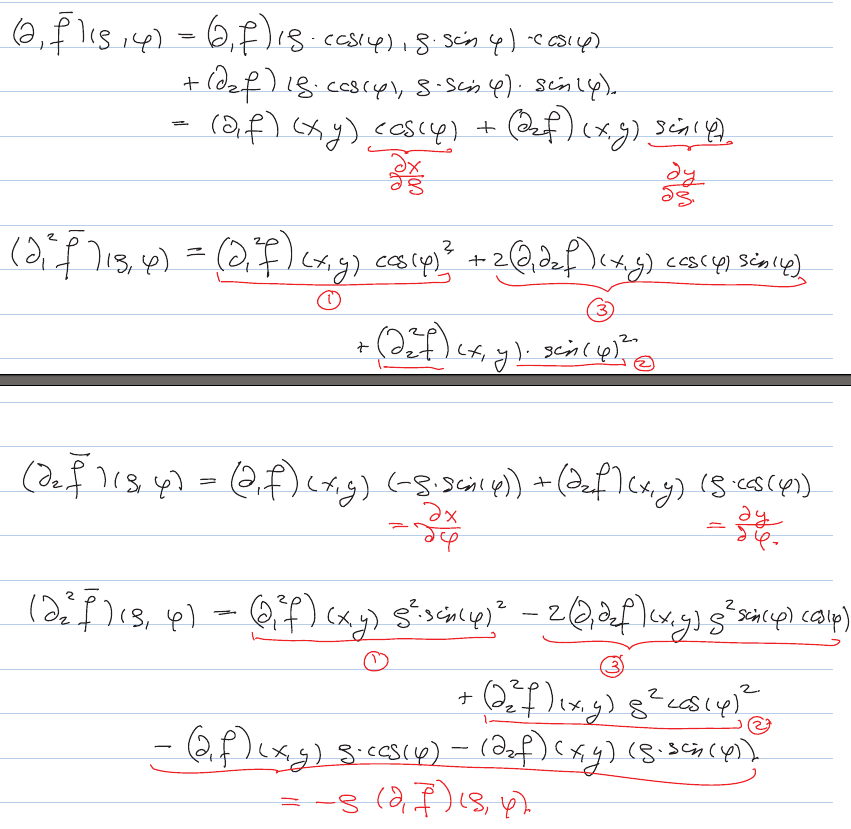 (∂₁f̄)(ρ,φ) = (∂₁f)(ρ·cos(φ), ρ·sin φ)·cos(φ)
+ (∂₂f)(ρ·cos(φ), ρ·sin φ)· sin(φ).
= (∂₁f)(x,y) cos(φ) + (∂₂f)(x,y) sin(φ)
∂x/∂ρ ∂y/∂ρ.
(∂₁²f̄)(ρ,φ) = (∂₁²f)(x,y) cos(φ)² + 2(∂₁∂₂f)(x,y) cos(φ) sin(φ)
① ③
+ (∂₂²f)(x,y)· sin(φ)² ②
(∂₂f̄)(ρ,φ) = (∂₁f)(x,y) (-ρ·sin(φ)) + (∂₂f)(x,y) (ρ·cos(φ))
= ∂x/∂φ = ∂y/∂φ.
(∂₂²f̄)(ρ,φ) = (∂₁²f)(x,y) ρ²·sin(φ)² - 2(∂₁∂₂f)(x,y) ρ² sin(φ) cos(φ)
① ③
+ (∂₂²f)(x,y) ρ² cos(φ)² ②
- (∂₁f)(x,y) ρ·cos(φ) - (∂₂f)(x,y) (ρ·sin(φ)).
= -ρ (∂₁f̄)(ρ,φ).